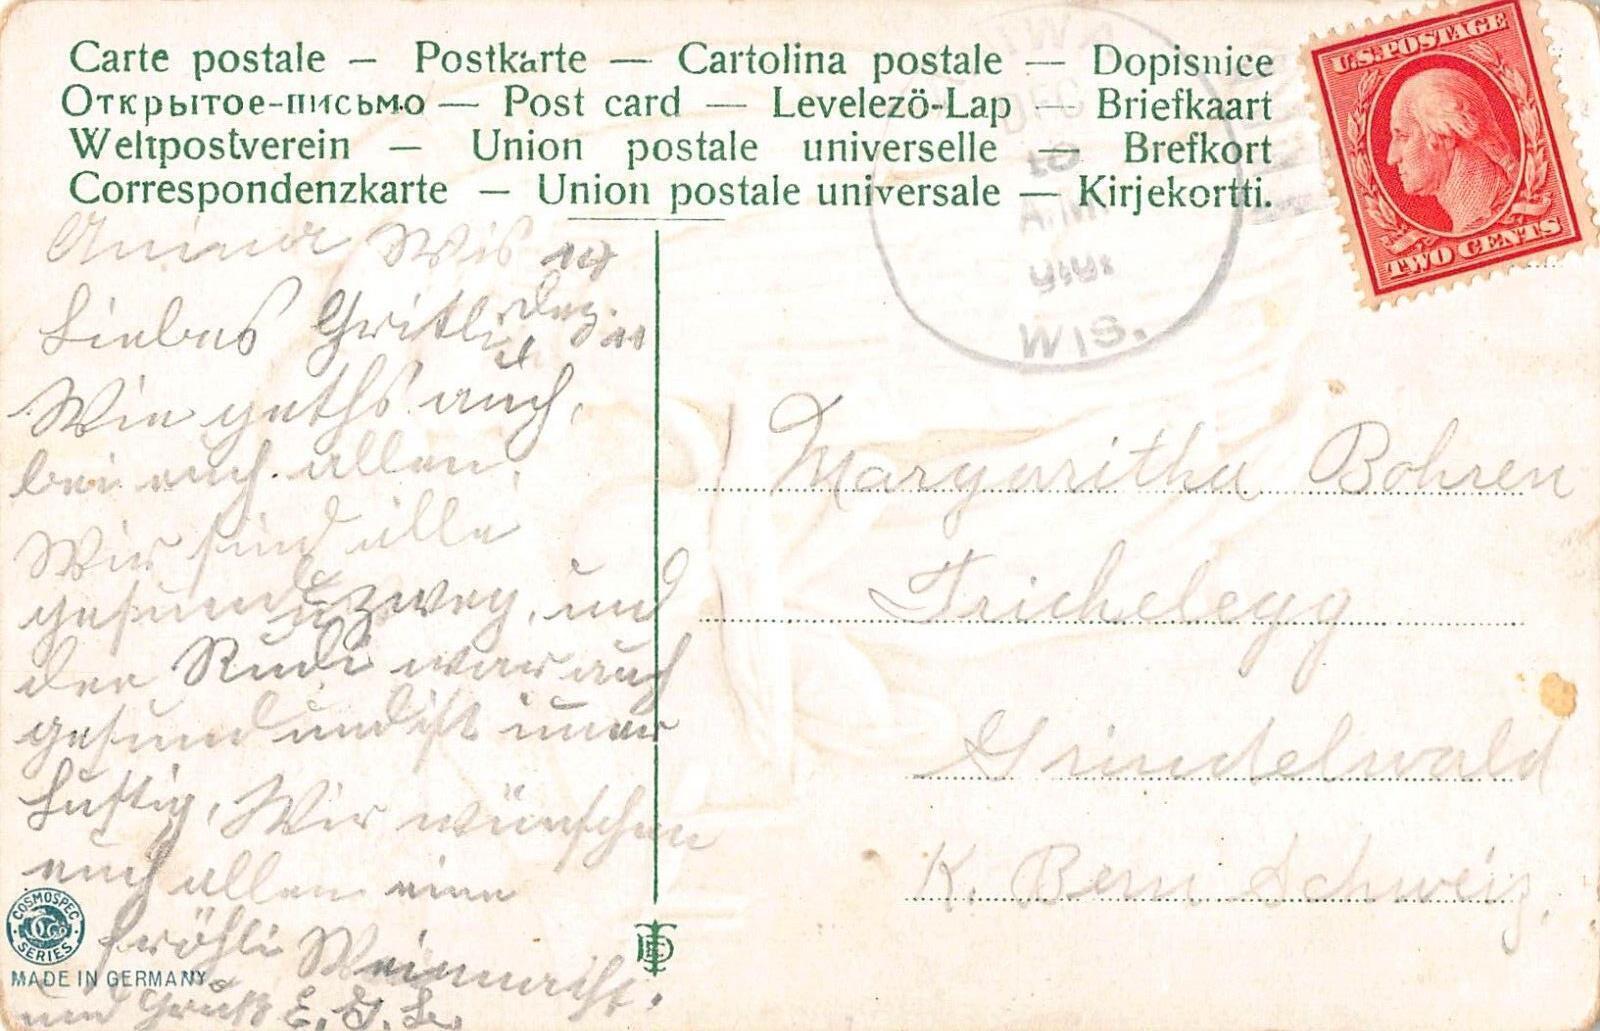 Carte postale — Postkarte — Cartolina postale — Dopisnice
Открытое-письмо — Post card — Levelezö-Lap — Briefkaart
Weltpostverein — Union postale universelle — Brefkort
Correspondenzkarte — Union postale universale — Kirjekortti.
U.S. POSTAGE
TWO CENTS
DEC
10
A.M.
WIS.
Wis
Liebes Gritli
Dez.
Wie geths auch,
bei euch allen,
Wir sind alle
gesund zweg, und
der Rudi war auch
gesund und ist imer
lustig, Wir wünschen
euch allen eine
fröhli Weinnacht.
und Gruß E. G. L.
Margaritha Bohren
Trichelegg
Grindelwald
K. Bern Schweiz,
COSMOSPEC
SERIES
MADE IN GERMANY